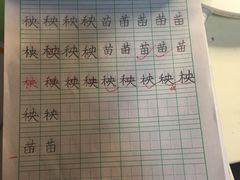 秧秧秧秧苗苗苗苗苗
秧秧秧秧苗苗苗苗苗
秧秧秧秧秧秧秧秧秧
秧秧
苗苗